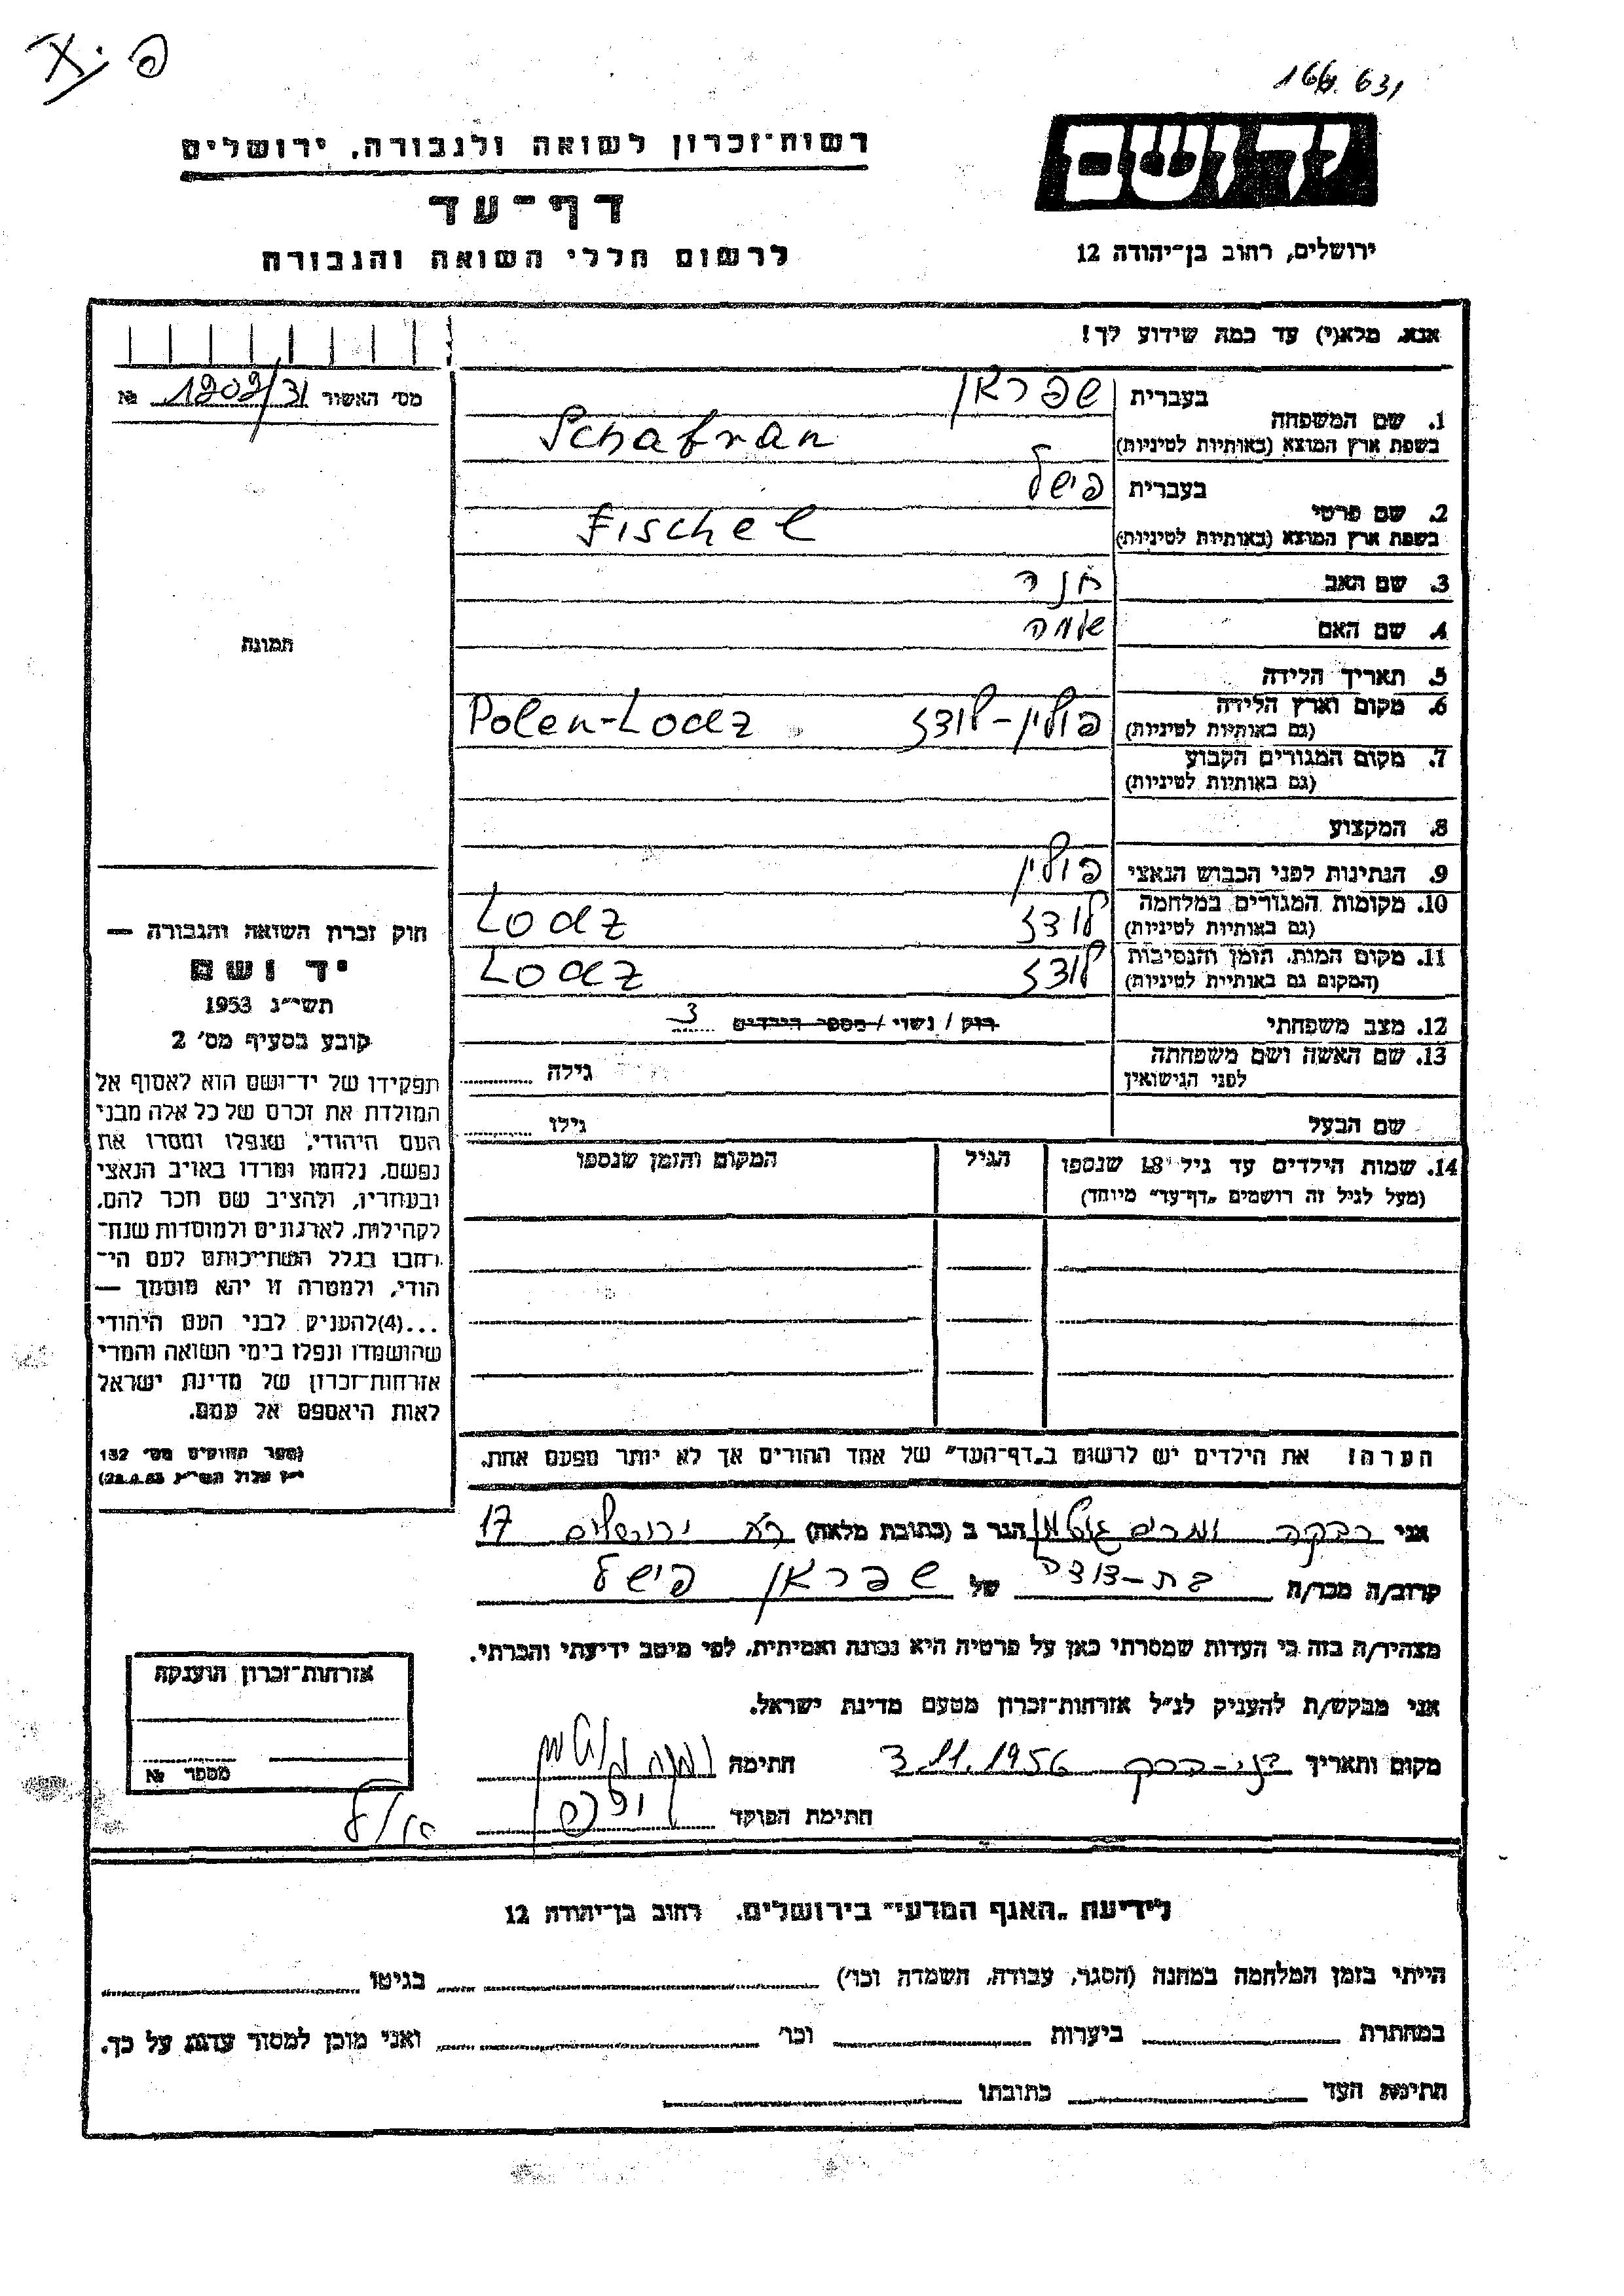 פ.נד
166. 631
יד ושם
ירושלים, רחוב בן־יהודה 12
רשות־זכרון לשואה ולגבורה, ירושלים
דף־עד
לרשום חללי השואה והגבורה
אנא, מלא(י) עד כמה שידוע לך!
מס׳ האשור 1202/31 №
1. שם המשפחה
בעברית שפראן
בשפת ארץ המוצא (באותיות לטיניות) Schafran
2. שם פרטי
בעברית פישל
בשפת ארץ המוצא (באותיות לטיניות) Fischel
3. שם האב
4. שם האם
5. תאריך הלידה
6. מקום וארץ הלידה
(גם באותיות לטיניות) פולין-לודז Polen-Lodz
7. מקום המגורים הקבוע
(גם באותיות לטיניות)
8. המקצוע
9. הנתינות לפני הכבוש הנאצי פולין
10. מקומות המגורים במלחמה
(גם באותיות לטיניות) לודז Lodz
11. מקום המות, הזמן והנסיבות
(המקום גם באותיות לטיניות) לודז Lodz
12. מצב משפחתי רוק / נשוי / מספר הילדים 3
13. שם האשה ושם משפחתה
לפני הנישואין גילה
שם הבעל גילו
14. שמות הילדים עד גיל 18 שנספו הגיל המקום והזמן שנספו
(מעל לגיל זה רושמים „דף־עד״ מיוחד)
הערה! את הילדים יש לרשום ב„דף־העד״ של אחד ההורים אך לא יותר מפעם אחת.
תמונה
חוק זכרון השואה והגבורה —
יד ושם
תשי״ג 1953
קובע בסעיף מס׳ 2
תפקידו של יד־ושם הוא לאסוף אל
המולדת את זכרם של כל אלה מבני
העם היהודי, שנפלו ומסרו את
נפשם, נלחמו ומרדו באויב הנאצי
ובעוזריו, ולהציב שם וזכר להם,
לקהילות, לארגונים ולמוסדות שנח־
רבו בגלל השתייכותם לעם הי־
הודי, ולמטרה זו יהא מוסמך —
...(4)להעניק לבני העם היהודי
שהושמדו ונפלו בימי השואה והמרי
אזרחות־זכרון של מדינת ישראל
לאות היאספם אל עמם.
(ספר החוקים מס׳ 132
י״ז אלול תשי״ג 28.8.53)
אני רבקה ומרים גוטמן הגר ב (כתובת מלאה) רח ירושלים 17
קרוב/ה מכר/ה בת-דודה של שפראן פישל
מצהיר/ה בזה כי העדות שמסרתי כאן על פרטיה היא נכונה ואמיתית, לפי מיטב ידיעתי והכרתי.
אני מבקש/ת להעניק לנ״ל אזרחות־זכרון מטעם מדינת ישראל.
מקום ותאריך בני-ברק 3.11.1956 חתימה
חתימת הפוקד
אזרחות־זכרון הוענקה
מספר №
לידיעת „האגף המדעי״ בירושלים, רחוב בן־יהודה 12
הייתי בזמן המלחמה במחנה (הסגר, עבודה, השמדה וכו׳) בגיטו
במחתרת ביערות וכו׳ ואני מוכן למסור עדות על כך.
חתימת העד כתובתו